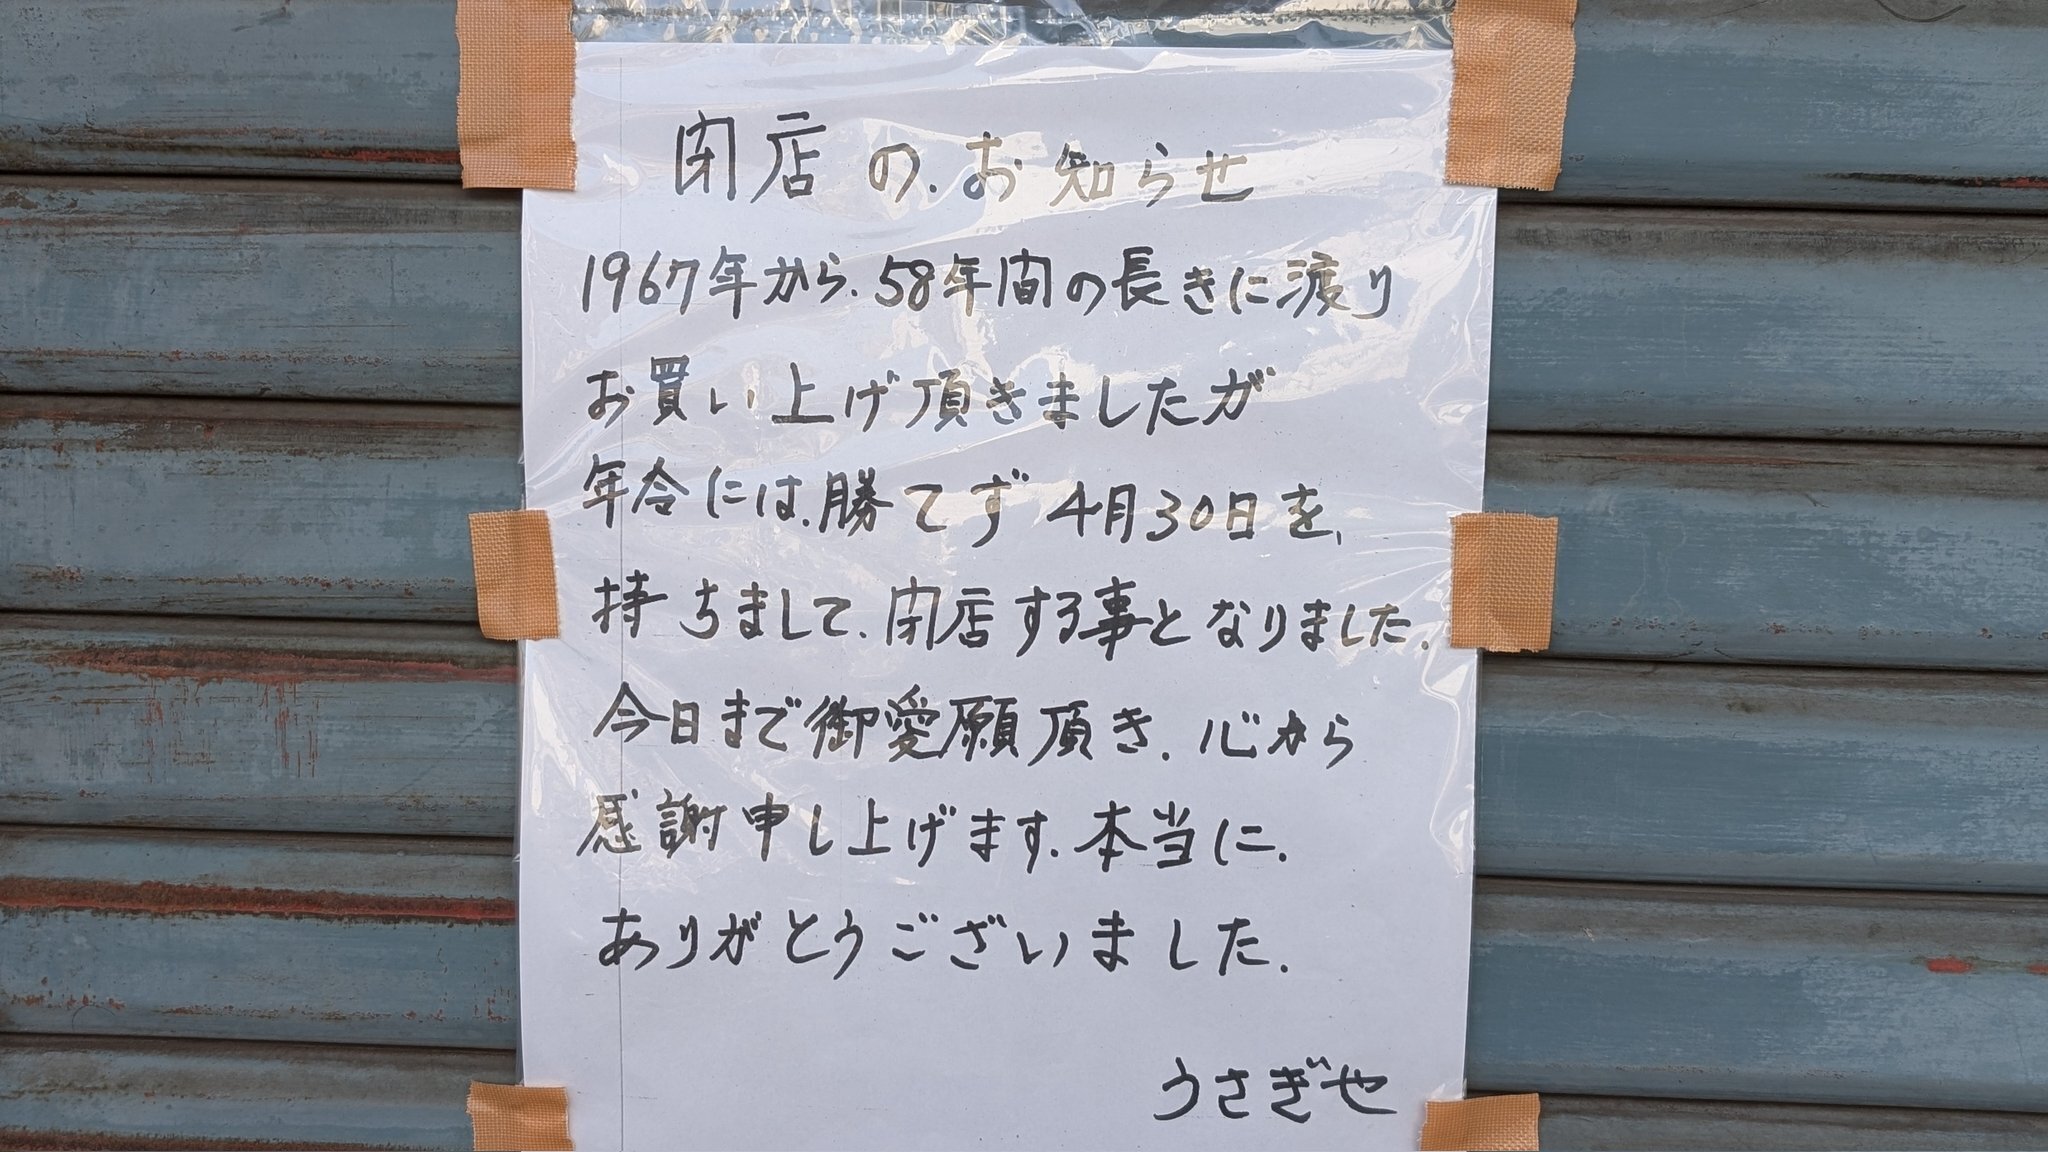 閉店の.お知らせ
1967年から.58年間の長きに渡り
お買い上げ頂きましたが
年令には.勝てず4月30日を、
持ちまして.閉店する事となりました.
今日まで御愛願頂き.心から
感謝申し上げます.本当に.
ありがとうございました.
うさぎや